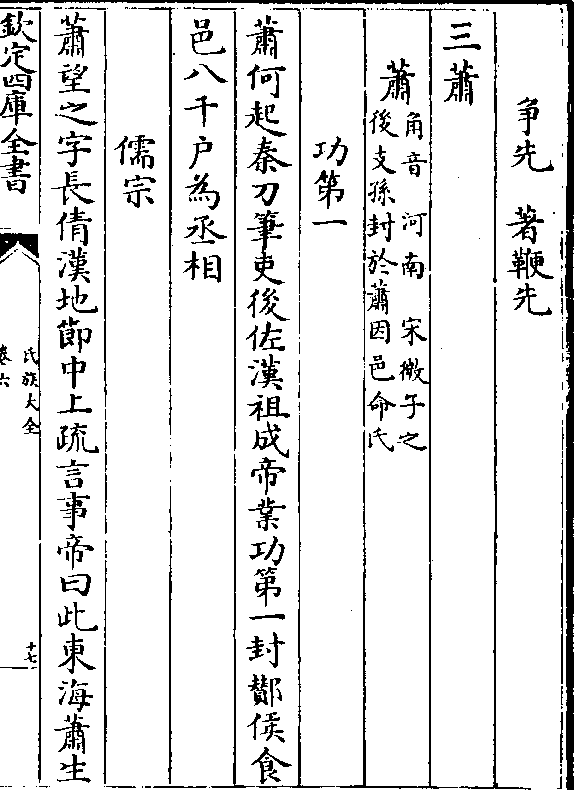 争先　著鞭先
三蕭
蕭
角音　河南　宋微子之
後支孫封於蕭因邑命氏
功第一
蕭何起秦刀筆吏後佐漢祖成帝業功第一封酇侯食
邑八千户為丞相
儒宗
蕭望之字長倩漢地節中上疏言事帝曰此東海蕭生
欽定四庫全書
氏族大全
卷六
十七